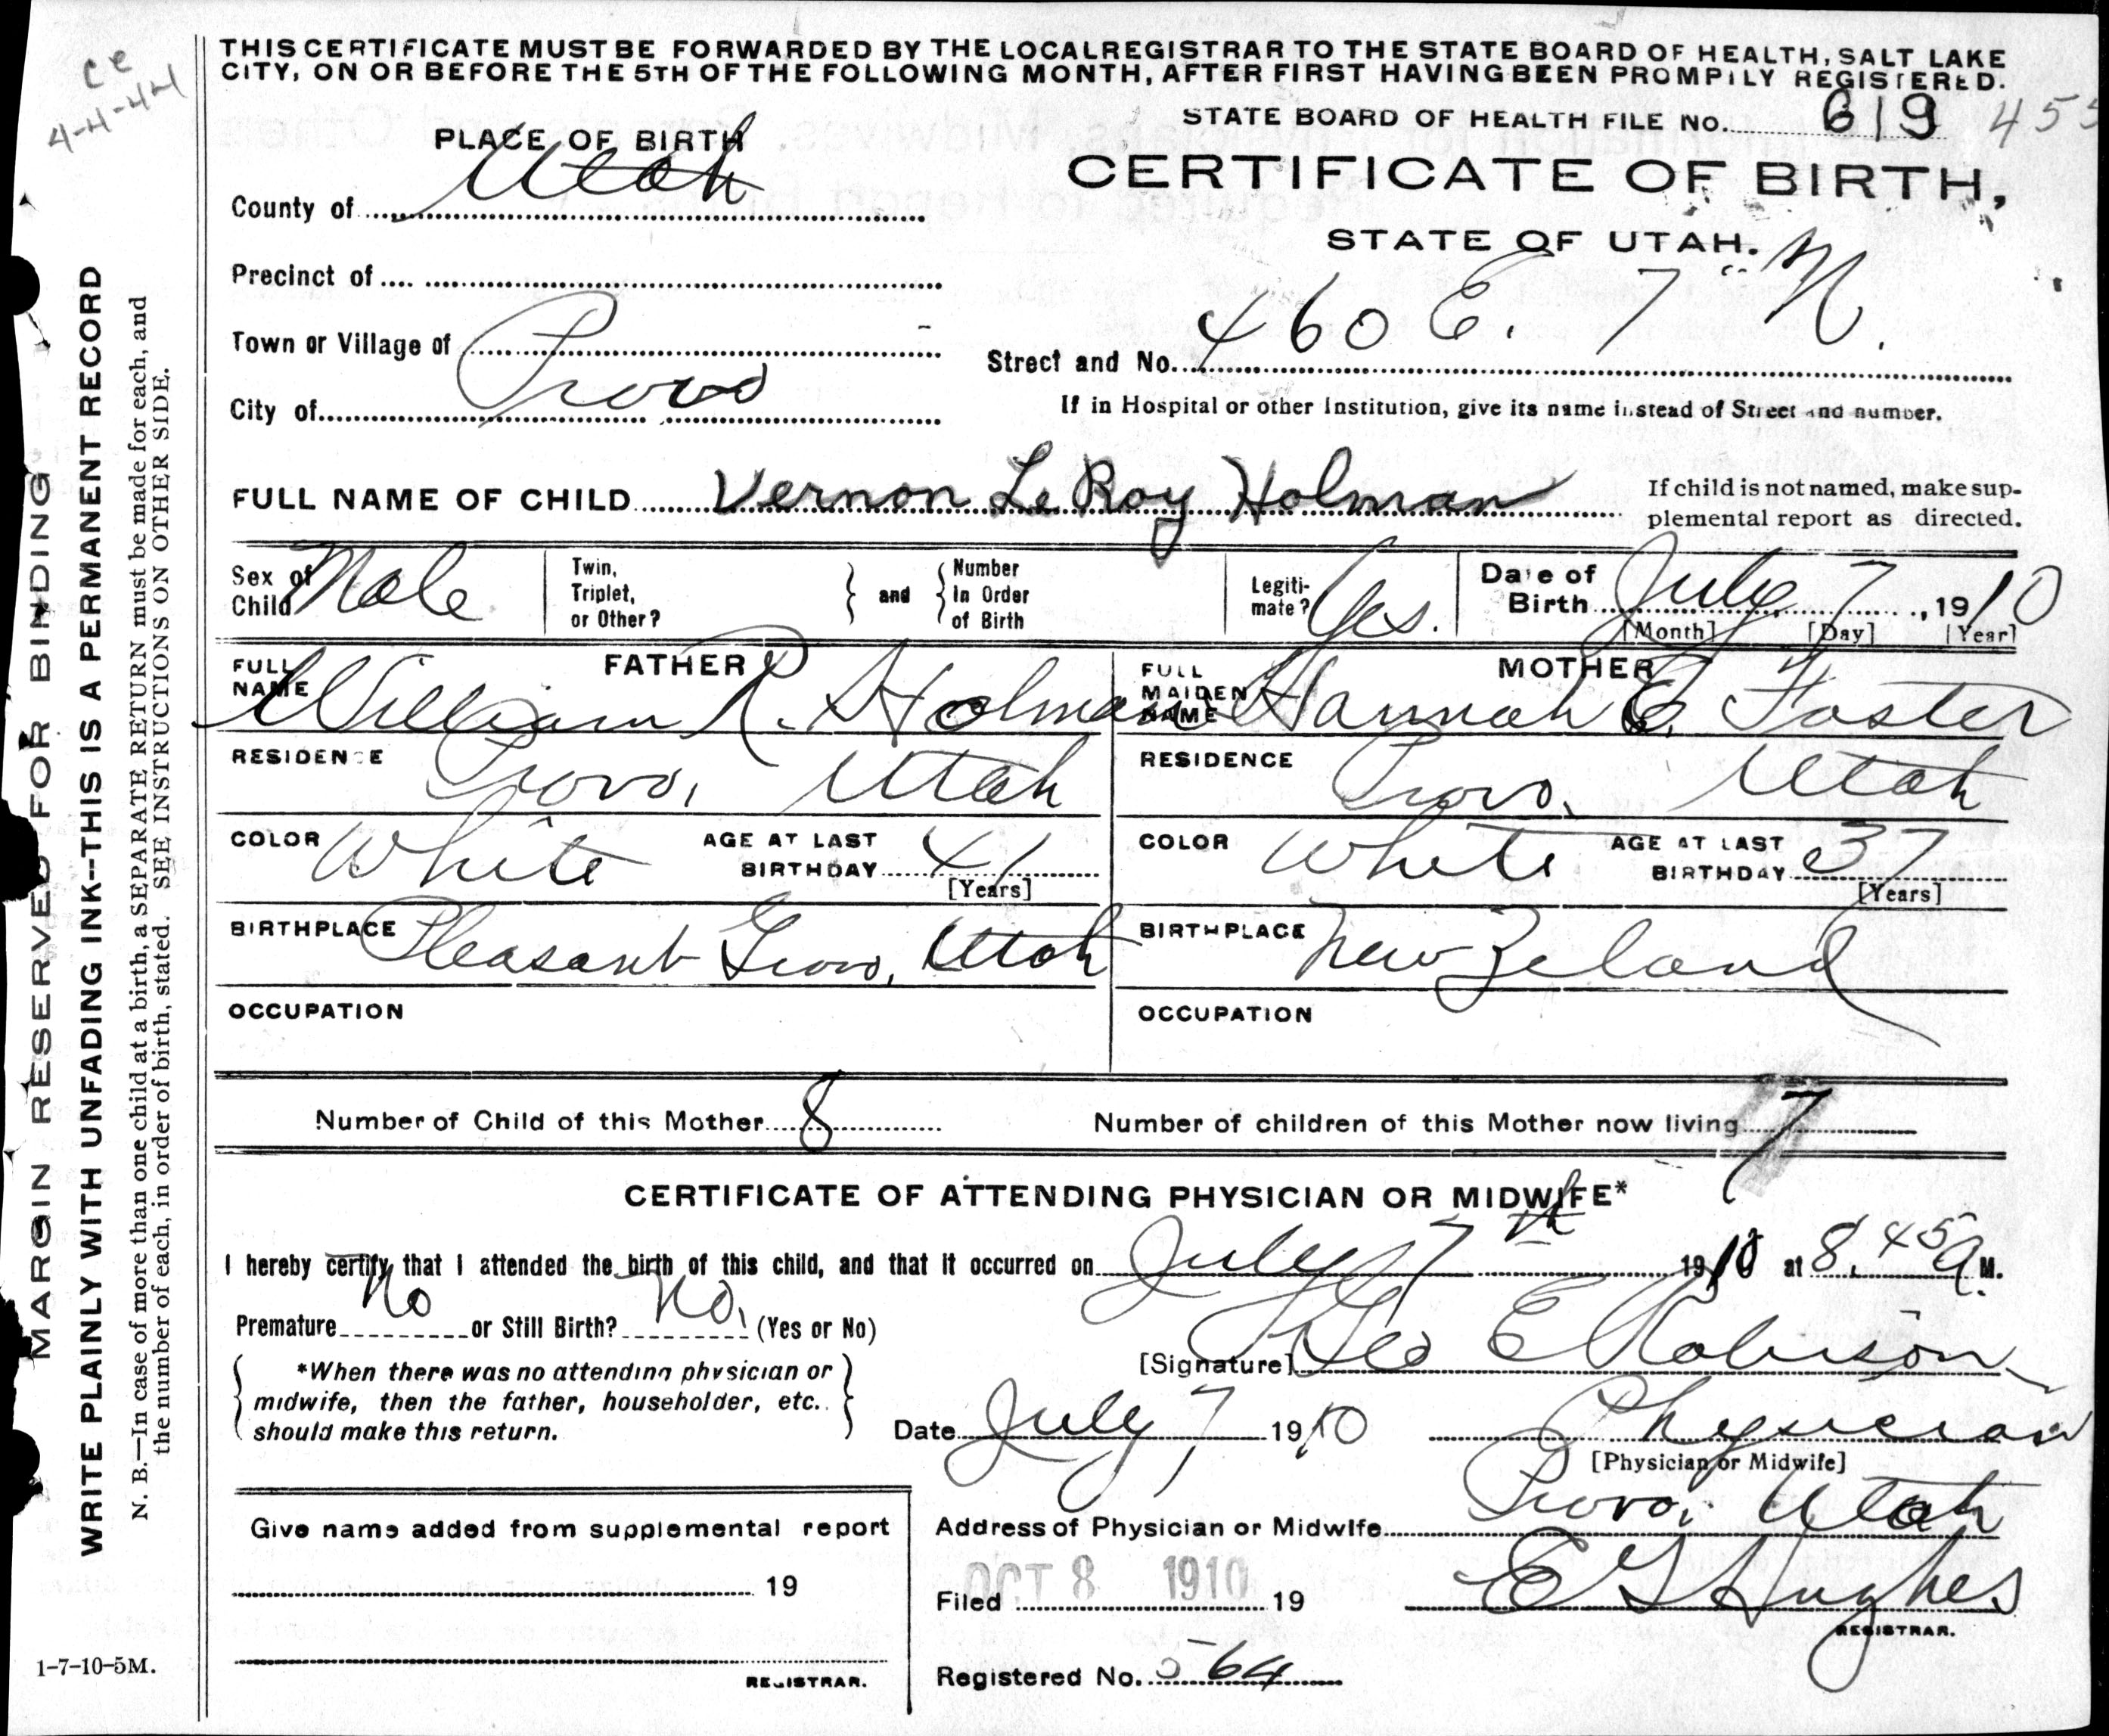 ce
4-4-44
THIS CERTIFICATE MUST BE FORWARDED BY THE LOCAL REGISTRAR TO THE STATE BOARD OF HEALTH, SALT LAKE
CITY, ON OR BEFORE THE 5TH OF THE FOLLOWING MONTH, AFTER FIRST HAVING BEEN PROMPTLY REGISTERED.
STATE BOARD OF HEALTH FILE No. 619 455
PLACE OF BIRTH
CERTIFICATE OF BIRTH,
County of Utah
STATE OF UTAH.
Precinct of
Town or Village of
Street and No. 460 E. 7" N.
City of Provo
If in Hospital or other Institution, give its name instead of Street and number.
FULL NAME OF CHILD Vernon Le Roy Holman
If child is not named, make sup-
plemental report as directed.
Sex of Child Male
Twin, Triplet, or Other?
and
Number In Order of Birth
Legiti-mate? Yes.
Date of Birth July 7, 1910
[Month] [Day] [Year]
FATHER
FULL NAME William R. Holman
MOTHER
FULL MAIDEN NAME Hannah E. Foster
RESIDENCE Provo, Utah
RESIDENCE Provo, Utah
COLOR White AGE AT LAST BIRTHDAY 41 [Years]
COLOR White AGE AT LAST BIRTHDAY 37 [Years]
BIRTHPLACE Pleasant Grove, Utah
BIRTHPLACE New Zeland
OCCUPATION
OCCUPATION
Number of Child of this Mother 8
Number of children of this Mother now living 7
CERTIFICATE OF ATTENDING PHYSICIAN OR MIDWIFE*
I hereby certify that I attended the birth of this child, and that it occurred on July 7th 1910 at 8.45 A. M.
Premature No or Still Birth? No. (Yes or No)
[Signature] Geo E Robison
*When there was no attending physician or
midwife, then the father, householder, etc.
should make this return.
Date July 7 1910
Physician
[Physician or Midwife]
Give name added from supplemental report
Address of Physician or Midwife Provo, Utah
19
Filed OCT 8 1910 19
E G Hughes
REGISTRAR.
REGISTRAR.
Registered No. 564
1-7-10-5M.
MARGIN RESERVED FOR BINDING
WRITE PLAINLY WITH UNFADING INK--THIS IS A PERMANENT RECORD
N. B.—In case of more than one child at a birth, a SEPARATE RETURN must be made for each, and
the number of each, in order of birth, stated. SEE INSTRUCTIONS ON OTHER SIDE.